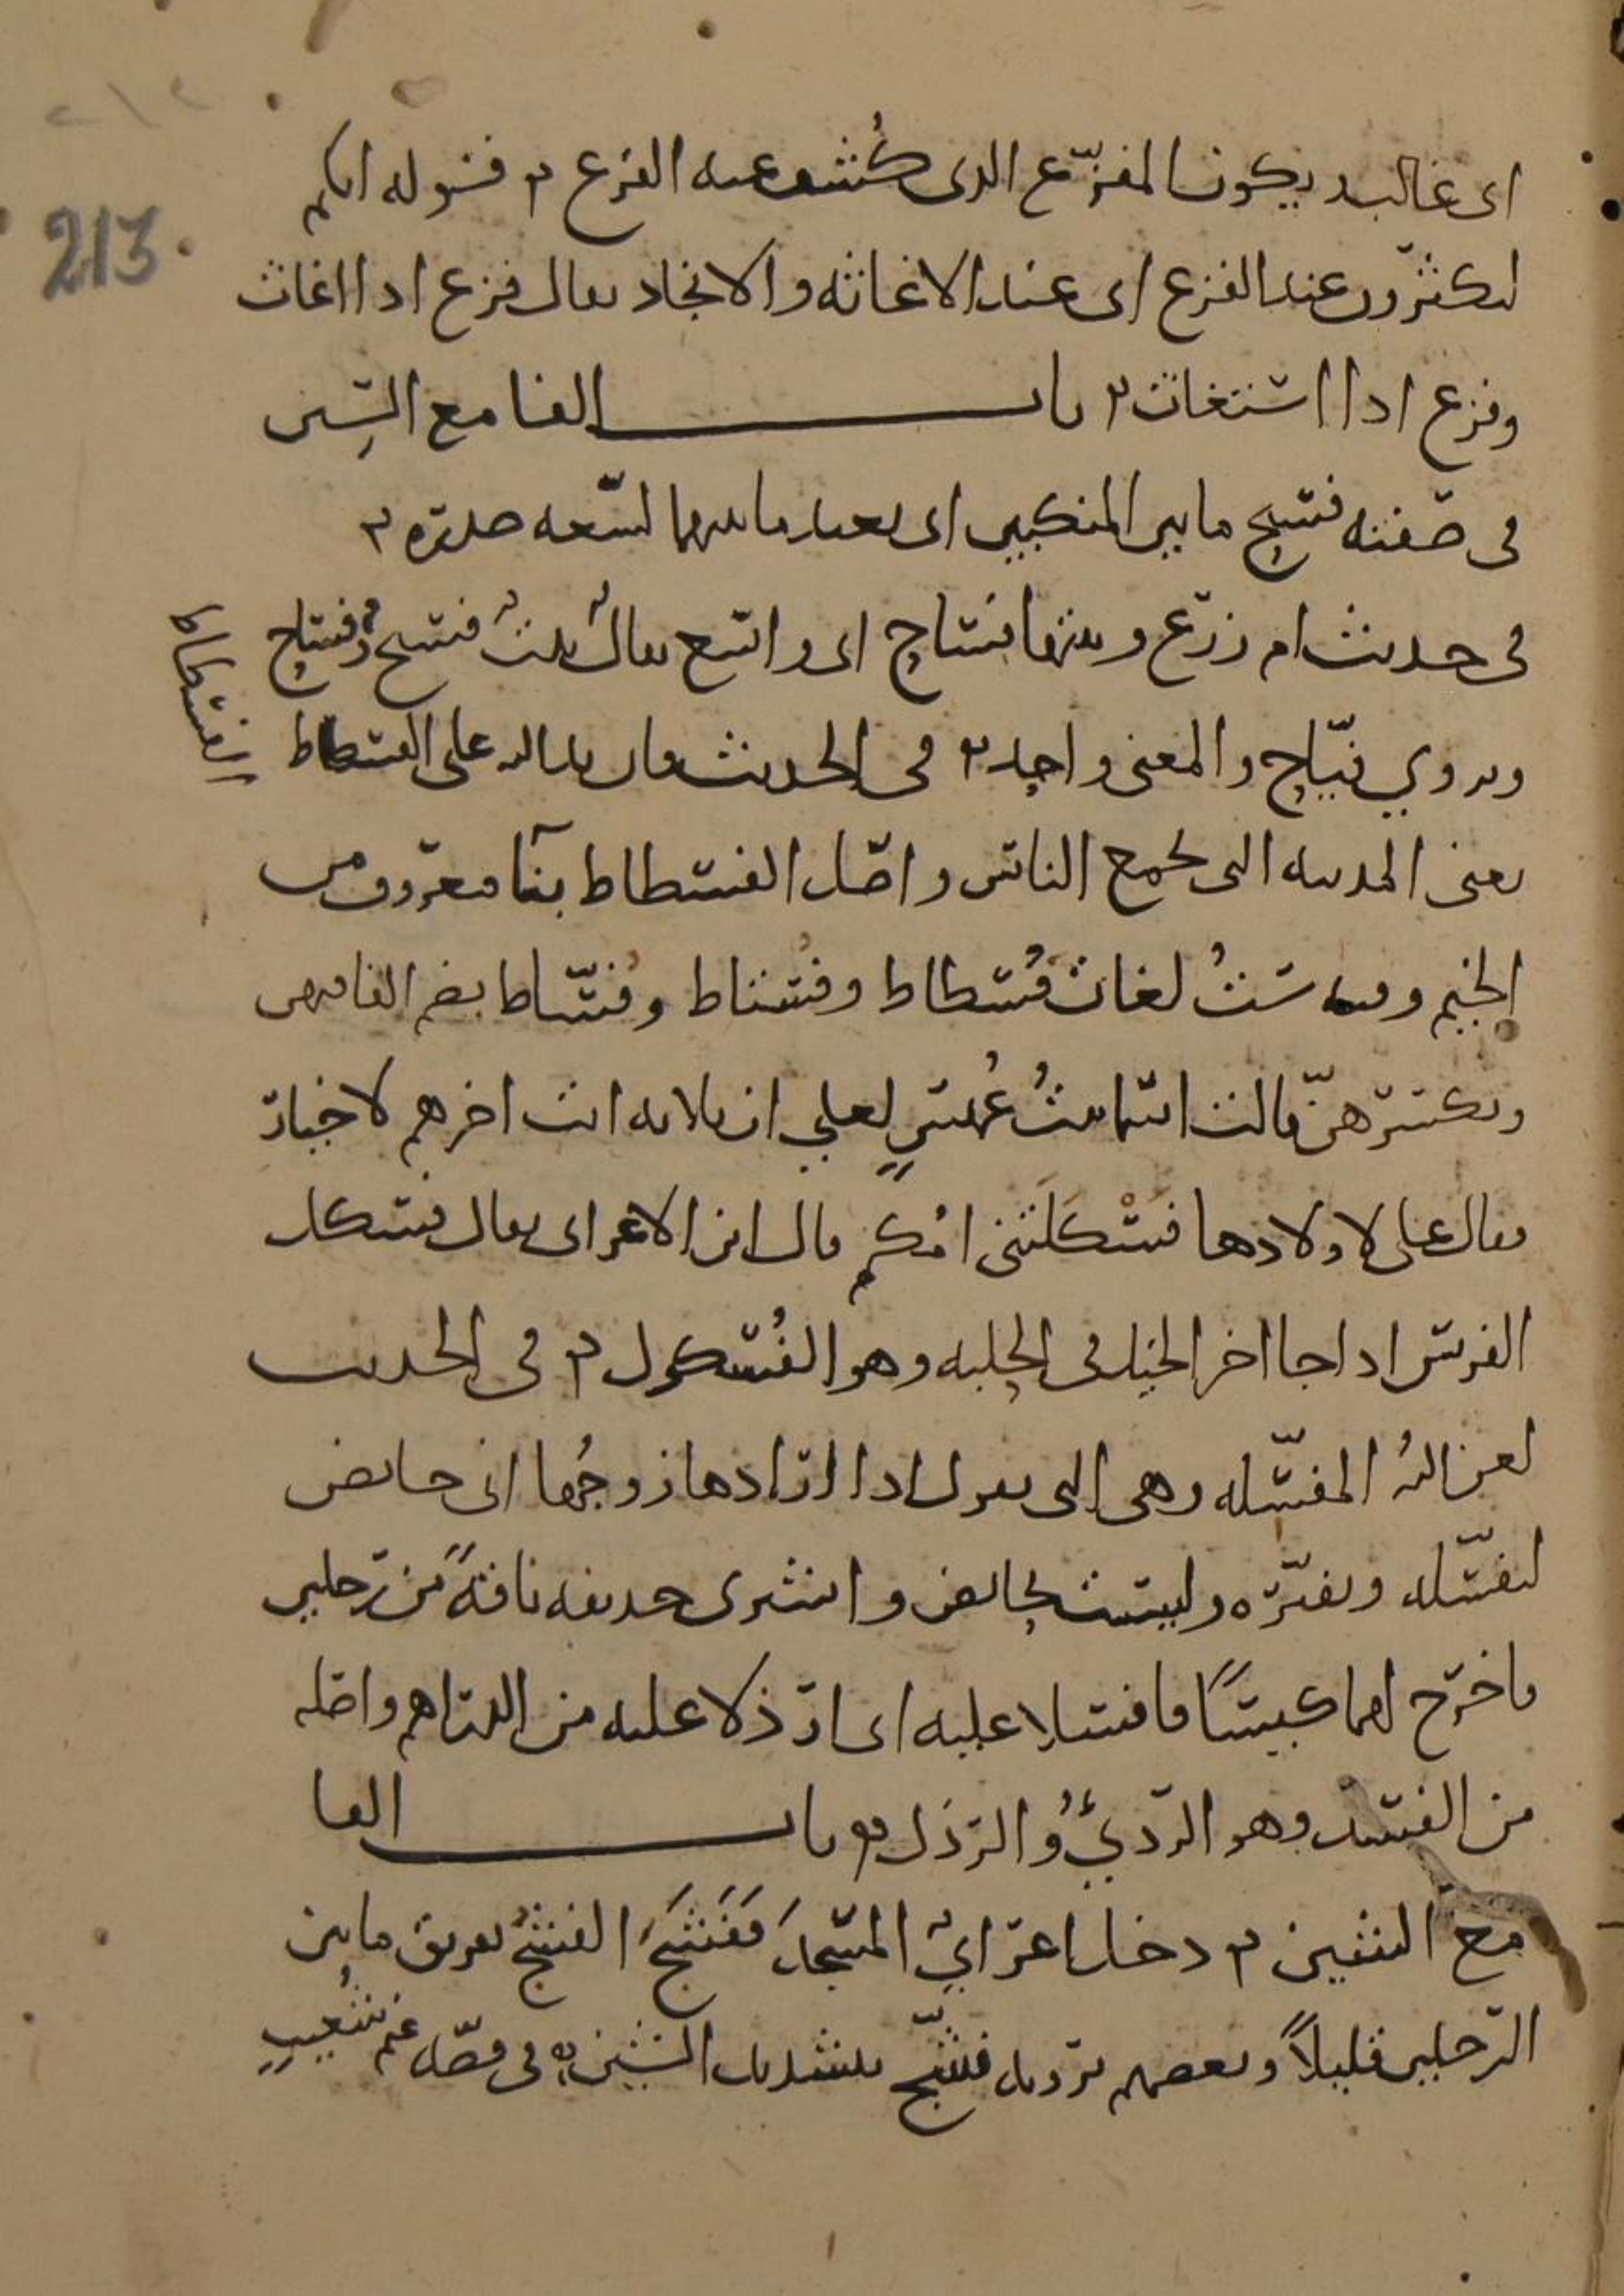 213
اى غالب ويكون المفزّع الدى كُشف عنه الفزع ۲ قوله انكم
لتكثرون عند الفزع اى عند الاغاثه والانجاد يقال فزع ادا اغاث
وفزع ادا استغاث ۲ باب الفا مع السين
فى صفته فسيح ما بين المنكبين اى بعيد ما بينهما لسعه صدره ۲
فى حديث ام زرع وبيتها فساح اى واسع يقال بيتٌ فسيحٌ وفساح
ويروي فيّاح والمعنى واحد ۲ فى الحديث فان يد الله على الفسطاط
الفسطاط
يعنى المدينه التى تجمع الناس واصل الفسطاط بنآ معروف من
الخيم وفيه ستُ لغات فُسطاط وفُستاط وفُسّاط بضم الفا فيهن
وبكسرهنّ قالت اسما بنتُ عُميسٍ لعلي ان ثلاثه انت اخرهم لاخيار
فقال على لاولادها فَسْكَلَتنى امُكم قال ابن الاعرابى يقال فسكل
الفرس ادا جا اخر الخيل فى الحلبه وهو الفُسكول ۲ فى الحديث
لعن اللهُ المفسّله وهى التى تقول ادا ارادها زوجُها انى حايض
لتفسّله وتفتّره وليست بحايض واشترى حديفه ناقةً من رجلين
فاخرج لهما كيسًا فافسلا عليه اى ارذلا عليه من الدراهم واصله
من الفسل وهو الرديُّ والرذل ۲ باب الفا
مع الشين ۲ دخل اعرابيٌ المسجدَ فَفَشَجَ الفشجُ تفريق ما بين
الرجلين قليلاً وبعضهم يرويه فشّج بتشديد الشين ۲ فى قصّه غنم شُعيبٍ